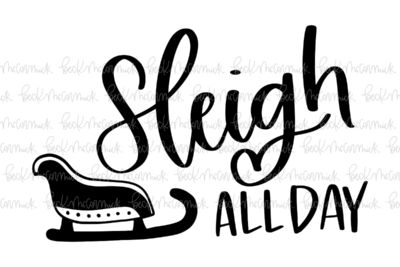 Sleigh
ALL DAY